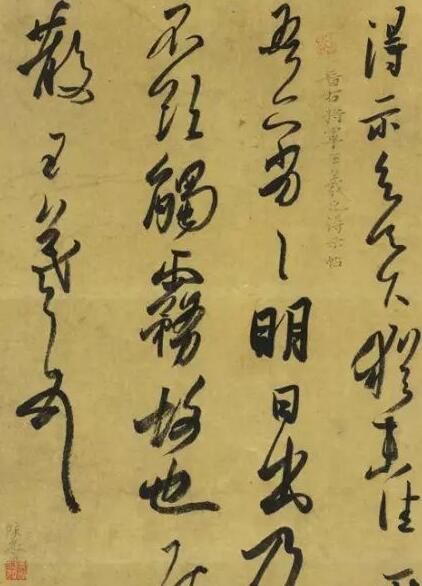 得示知足下猶未佳
晉右將軍王羲之得示帖
吾亦劣〻明日出乃
不欲觸霧故也
散王羲之頓首